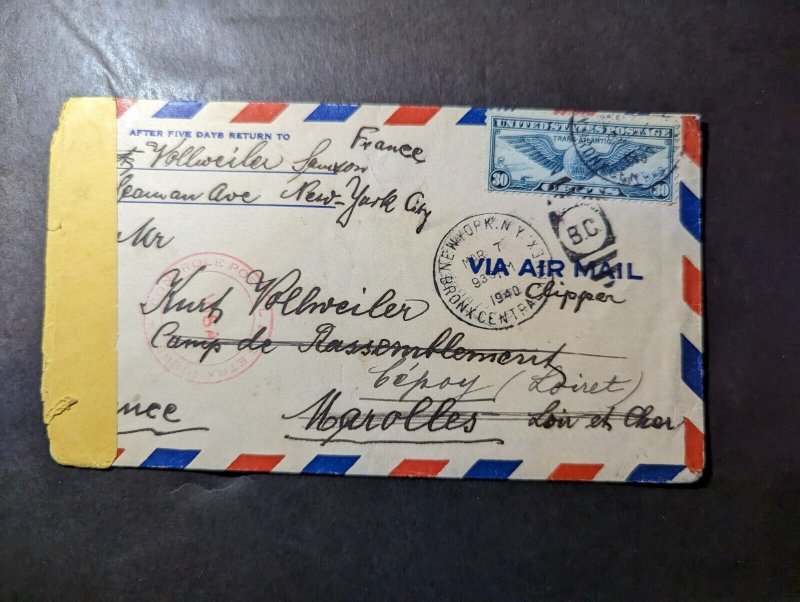 AFTER FIVE DAYS RETURN TO
France
Vollweiler Samson
Seaman Ave New-York City
Mr
UNITED STATES POSTAGE
TRANS-ATLANTIC
30 CENTS 30
NEW YORK, N.Y.
7
1940
BRONX CENTRAL
B.C.
VIA AIR MAIL
Clipper
Kurt Vollweiler
Camp de Rassemblement
Cépoy (Loiret)
Marolles Loir et Cher